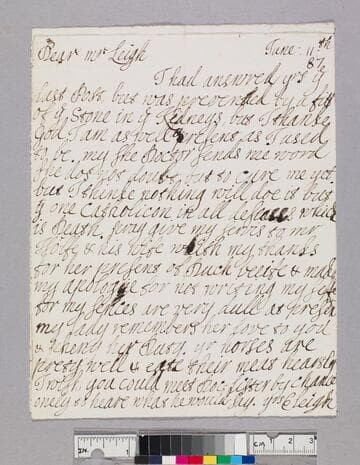 Dear mr Leigh June: 11:th
87
I had answerd yrs ye
last Post, but was prevented by a fitt
of ye Stone in ye Kidneys, but I thanke
God I am as well at present as I used
to be. my she Doctor sends me word
she dos not doubt but to cure me yet,
but I thinke nothing will doe it but
ye one Catholicon in all deseases which
is Death, pray give my servis to mr
& his wife with my thanks
for her present of Duck & make
my apologie for not writing my selfe
for my sences are very dull at present
my Lady remembers her love to you
& Friend her Duty. yr horses are
prety well & eate their meis heartily
I wish you could meet Doc: by chance
onely to heare what he would say. yrs CLeigh
IN 1 CM 1 2 3